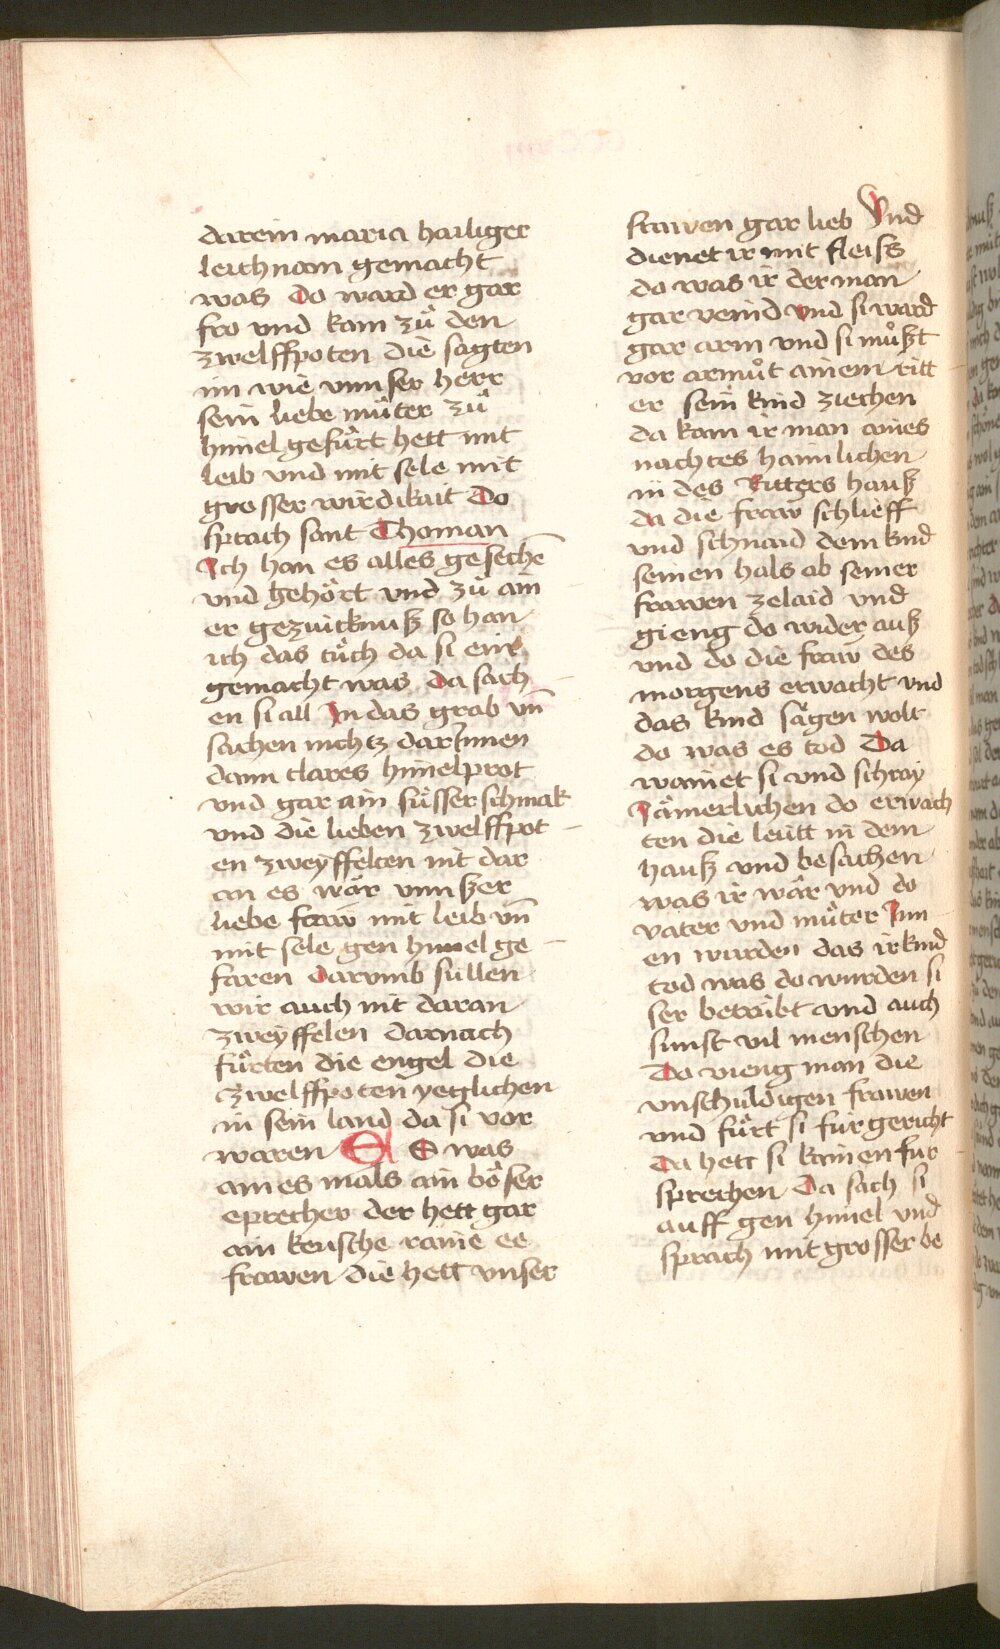 darein maria hailiger
leichnam gemacht
was Do ward er gar
fro vnd kam zů den
zwelffpoten die sagten
im wie vnnser herr
sein liebe můter zů
himel gefůrt hett mit
leib vnd mit sele mit
grosser wirdikait Do
sprach sant Thoman
Ich han es alles gesechē
vnd gehört vnd zů ain
er gezuicknuß so han
ich das tůch da si ein
gemacht was Da sach
en si all In das grab vn̄
sachen nichtz darInnen
dann clares himelprot
vnd gar ain sůsser schmak
vnd die lieben zwelffpot
en zweyffelten nit dar
an es wär vnnßer
liebe fraw mit leib vn̄
mit sele gen himel ge
faren Darvmb sullen
wir auch nit daran
zweyffelen darnach
fůrten die engel die
zwelffpoten yeglichen
in sein land da si vor
waren E S was
aines mals ain böser
eprecher der hett gar
ain keusche raine ee
frawen die hett vnser
frawen gar lieb Vnd
dienet ir mit fleiss
do was ir der man
gar veind vnd si ward
gar arm vnd si můßt
vor armůt ainem ritt
er sein kind ziechen
da kam ir man aines
nachtes haimlichen
in des Ritters hauß
da die fraw schlieff
vnd schnaid dem kind
seinen hals ab seiner
frawen zelaid vnd
gieng do wider auß
vnd do die fraw des
morgens erwacht vnd
das kind sägen wolt
do was es tod Da
wainet si vnd schray
Jämerlichen do erwach
ten die leutt in dem
hauß vnd besachen
was ir wär vnd do
vater vnd můter Inn
en wurden das ir kind
tod was do wurden si
ser betrübt vnd auch
sunst vil menschen
Do vieng man die
vnschuldigen frawen
vnd fůrt si fur gericht
Da hett si kainen fur
sprechen Da sach si
auff gen himel vnd
sprach mit grosser be